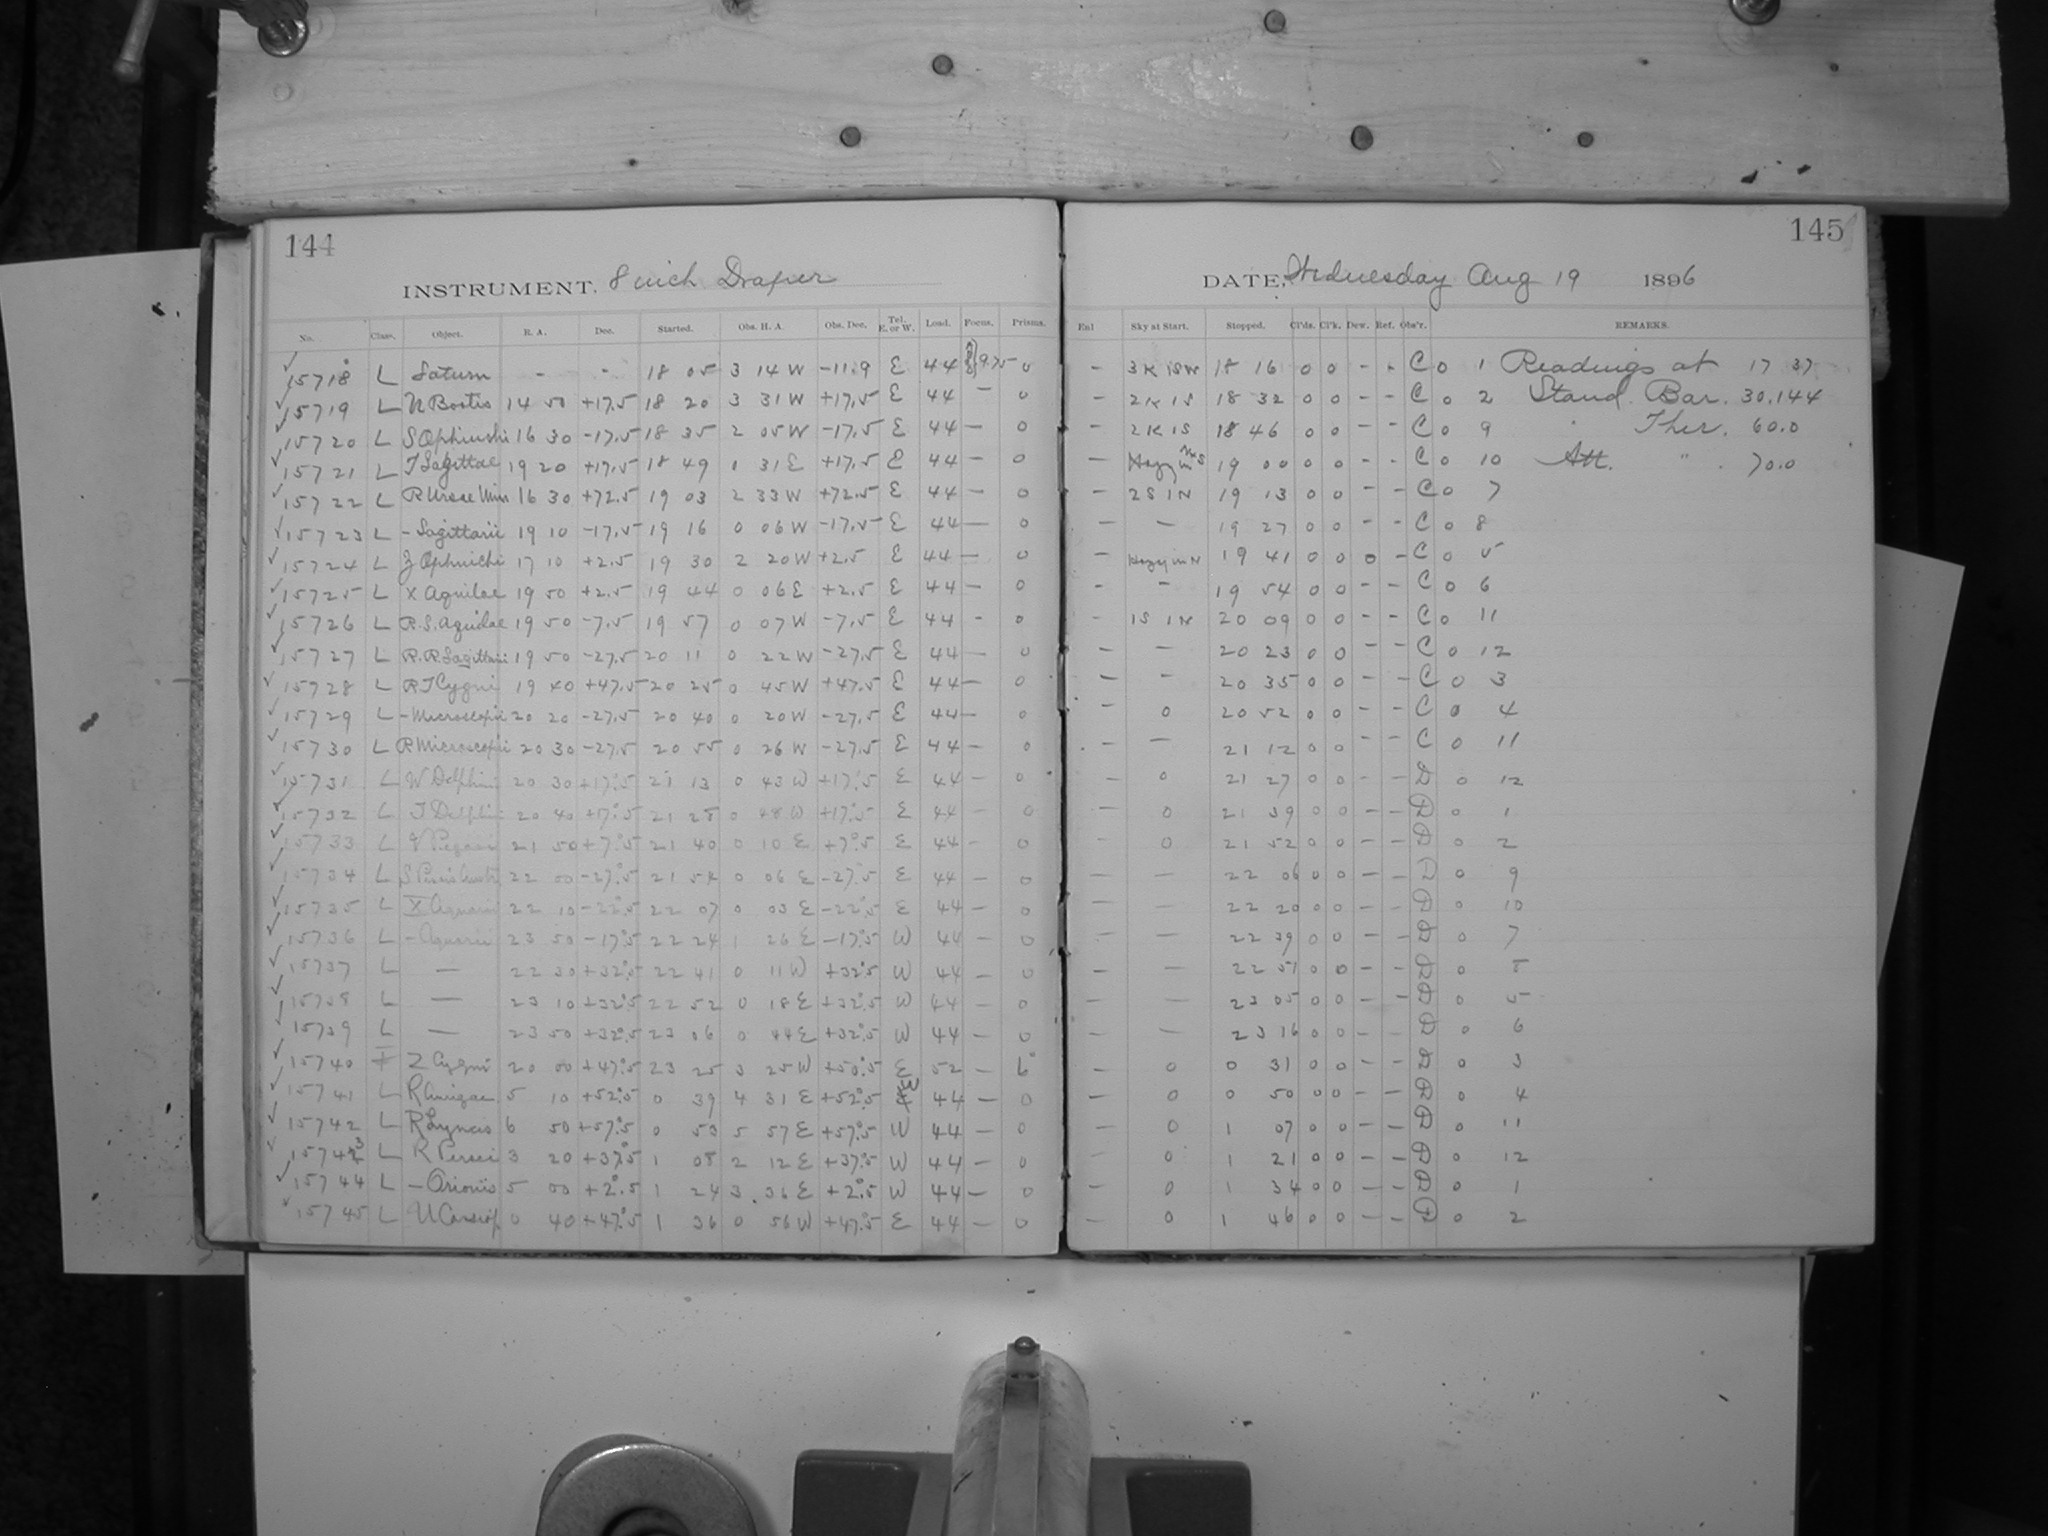 144
145
INSTRUMENT. 8 inch Draper
DATE, Wednesday Aug 19 1896
No. Class. Object. R. A. Dec. Started. Obs. H. A. Obs. Dec. Tel. E. or W. Load. Focus. Prisms. Enl Sky at Start. Stopped. Cl'ds. Cl'k. Dew. Ref. Obs'r. REMARKS.
✓ 15718 L Saturn - - 18 05 3 14 W -11.9 E 44 9.75 0 - 3K 1SW 18 16 0 0 - - C 0 1 Readings at 17 37
✓ 15719 L U Bootis 14 50 +17.5 18 20 3 31 W +17.5 E 44 - 0 - 2K 1S 18 32 0 0 - - C 0 2 Stand. Bar. 30.144
✓ 15720 L S Ophiuchi 16 30 -17.5 18 35 2 05 W -17.5 E 44 - 0 - 2K 1S 18 46 0 0 - - C 0 9 Ther. 60.0
✓ 15721 L T Sagittae 19 20 +17.5 18 49 1 31 E +17.5 E 44 - 0 - Hazy in N S 19 00 0 0 - - C 0 10 Att. " 70.0
✓ 15722 L R Ursae Min 16 30 +72.5 19 03 2 33 W +72.5 E 44 - 0 - 2S 1N 19 13 0 0 - - C 0 7
✓ 15723 L - Sagittarii 19 10 -17.5 19 16 0 06 W -17.5 E 44 - 0 - - 19 27 0 0 - - C 0 8
✓ 15724 L Z Ophiuchi 17 10 +2.5 19 30 2 20 W +2.5 E 44 - 0 - Hazy in N 19 41 0 0 0 - C 0 5
✓ 15725 L X Aquilae 19 50 +2.5 19 44 0 06 E +2.5 E 44 - 0 - - 19 54 0 0 - - C 0 6
✓ 15726 L R.S. Aquilae 19 50 -7.5 19 57 0 07 W -7.5 E 44 - 0 - 1S 1N 20 09 0 0 - - C 0 11
✓ 15727 L R.R. Sagittarii 19 50 -27.5 20 11 0 22 W -27.5 E 44 - 0 - - 20 23 0 0 - - C 0 12
✓ 15728 L R T Cygni 19 40 +47.5 20 25 0 45 W +47.5 E 44 - 0 - - 20 35 0 0 - - C 0 3
✓ 15729 L - Microscopii 20 20 -27.5 20 40 0 20 W -27.5 E 44 - 0 - 0 20 52 0 0 - - C 0 4
✓ 15730 L R Microscopii 20 30 -27.5 20 55 0 26 W -27.5 E 44 - 0 - - 21 12 0 0 - - C 0 11
✓ 15731 L W Delphini 20 30 +17°.5 21 13 0 43 W +17°.5 E 44 - 0 - 0 21 27 0 0 - - D 0 12
✓ 15732 L T Delphi 20 40 +17°.5 21 28 0 48 W +17°.5 E 44 - 0 - 0 21 39 0 0 - - D 0 1
✓ 15733 L V Pegasi 21 50 +7°.5 21 40 0 10 E +7°.5 E 44 - 0 - 0 21 52 0 0 - - D 0 2
✓ 15734 L S Piscis Austr 22 00 -27°.5 21 54 0 06 E -27°.5 E 44 - 0 - - 22 06 0 0 - - D 0 9
✓ 15735 L X Aquarii 22 10 -22°.5 22 07 0 03 E -22°.5 E 44 - 0 - - 22 20 0 0 - - D 0 10
✓ 15736 L - Aquarii 23 50 -17°.5 22 24 1 26 E -17°.5 W 44 - 0 - - 22 39 0 0 - - D 0 7
✓ 15737 L - 22 30 +32°.5 22 41 0 11 W +32°.5 W 44 - 0 - - 22 51 0 0 - - D 0 8
✓ 15738 L - 23 10 +32°.5 22 52 0 18 E +32°.5 W 44 - 0 - - 23 05 0 0 - - D 0 5
✓ 15739 L - 23 50 +32°.5 23 06 0 44 E +32°.5 W 44 - 0 - - 23 16 0 0 - - D 0 6
✓ 15740 I Z Cygni 20 00 +47°.5 23 25 3 25 W +50°.5 E 52 - 6° - 0 0 31 0 0 - - D 0 3
✓ 15741 L R Aurigae 5 10 +52°.5 0 39 4 31 E +52°.5 W 44 - 0 - 0 0 50 0 0 - - D 0 4
✓ 15742 L R Lyncis 6 50 +57°.5 0 53 5 57 E +57°.5 W 44 - 0 - 0 1 07 0 0 - - D 0 11
✓ 15743 L R Persei 3 20 +37°.5 1 08 2 12 E +37°.5 W 44 - 0 - 0 1 21 0 0 - - D 0 12
✓ 15744 L - Orionis 5 00 +2°.5 1 24 3 36 E +2°.5 W 44 - 0 - 0 1 34 0 0 - - D 0 1
✓ 15745 L U Cassiop 0 40 +47°.5 1 36 0 56 W +47°.5 E 44 - 0 - 0 1 46 0 0 - - D 0 2